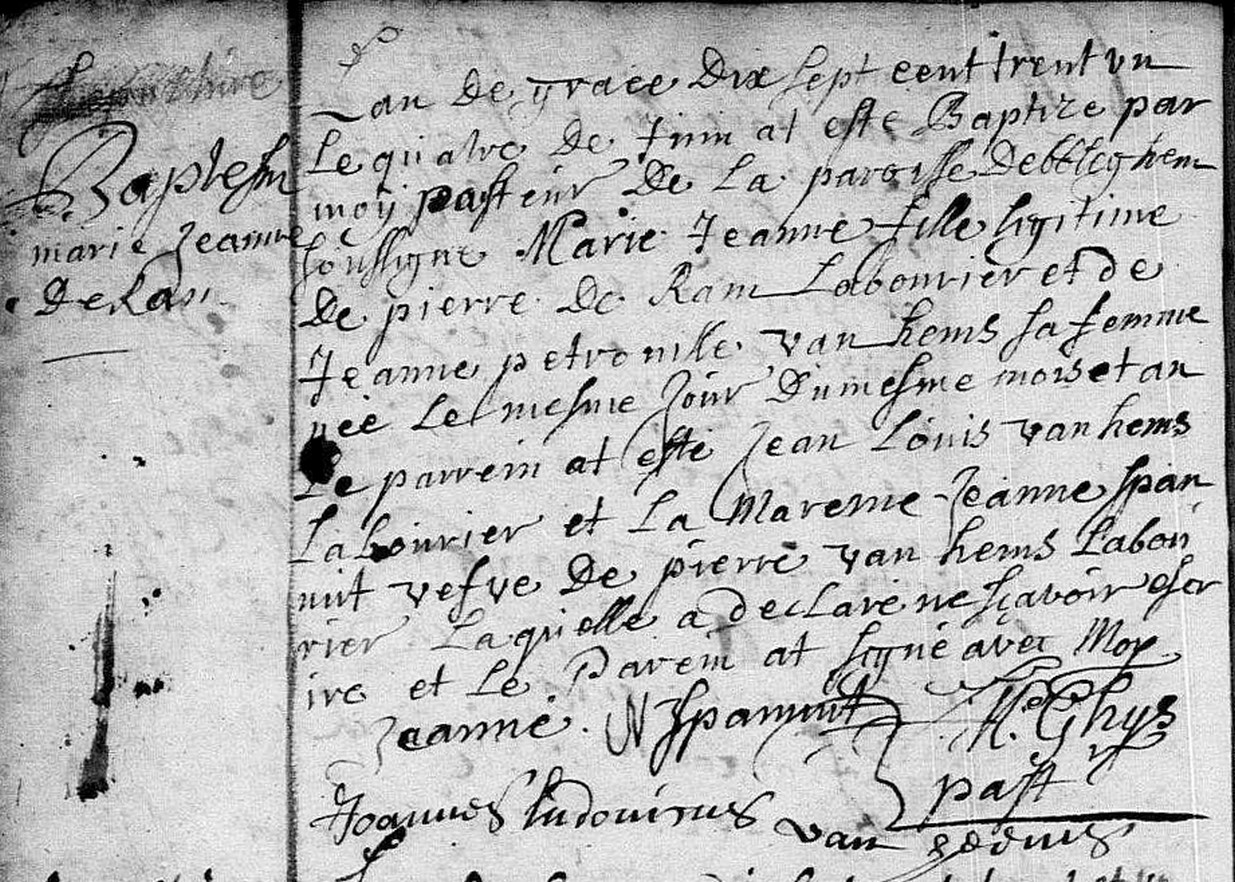 Baptesm
marie Jeanne
De Ram
Lan De grace Dix sept cent trent un
Le quatre De Juin at esté Baptize par
moÿ pasteur De La paroisse
soussigne Marie Jeanne fille ligitime
De pierre De Ram Labourier et de
Jeanne petronille van hems sa femme
neé Le mesme Jour Du mesme mois et an
Le parrein at esté Jean Louis van hems
Labourier et La Mareine Jeanne span
nut vefve De pierre van hems Labou
rier Laquelle a declaré ne sçavoir escr
ire et Le Parein at signé avec Moy
Jeanne Spannut
Ghys
past
Joannes ludovicus
van